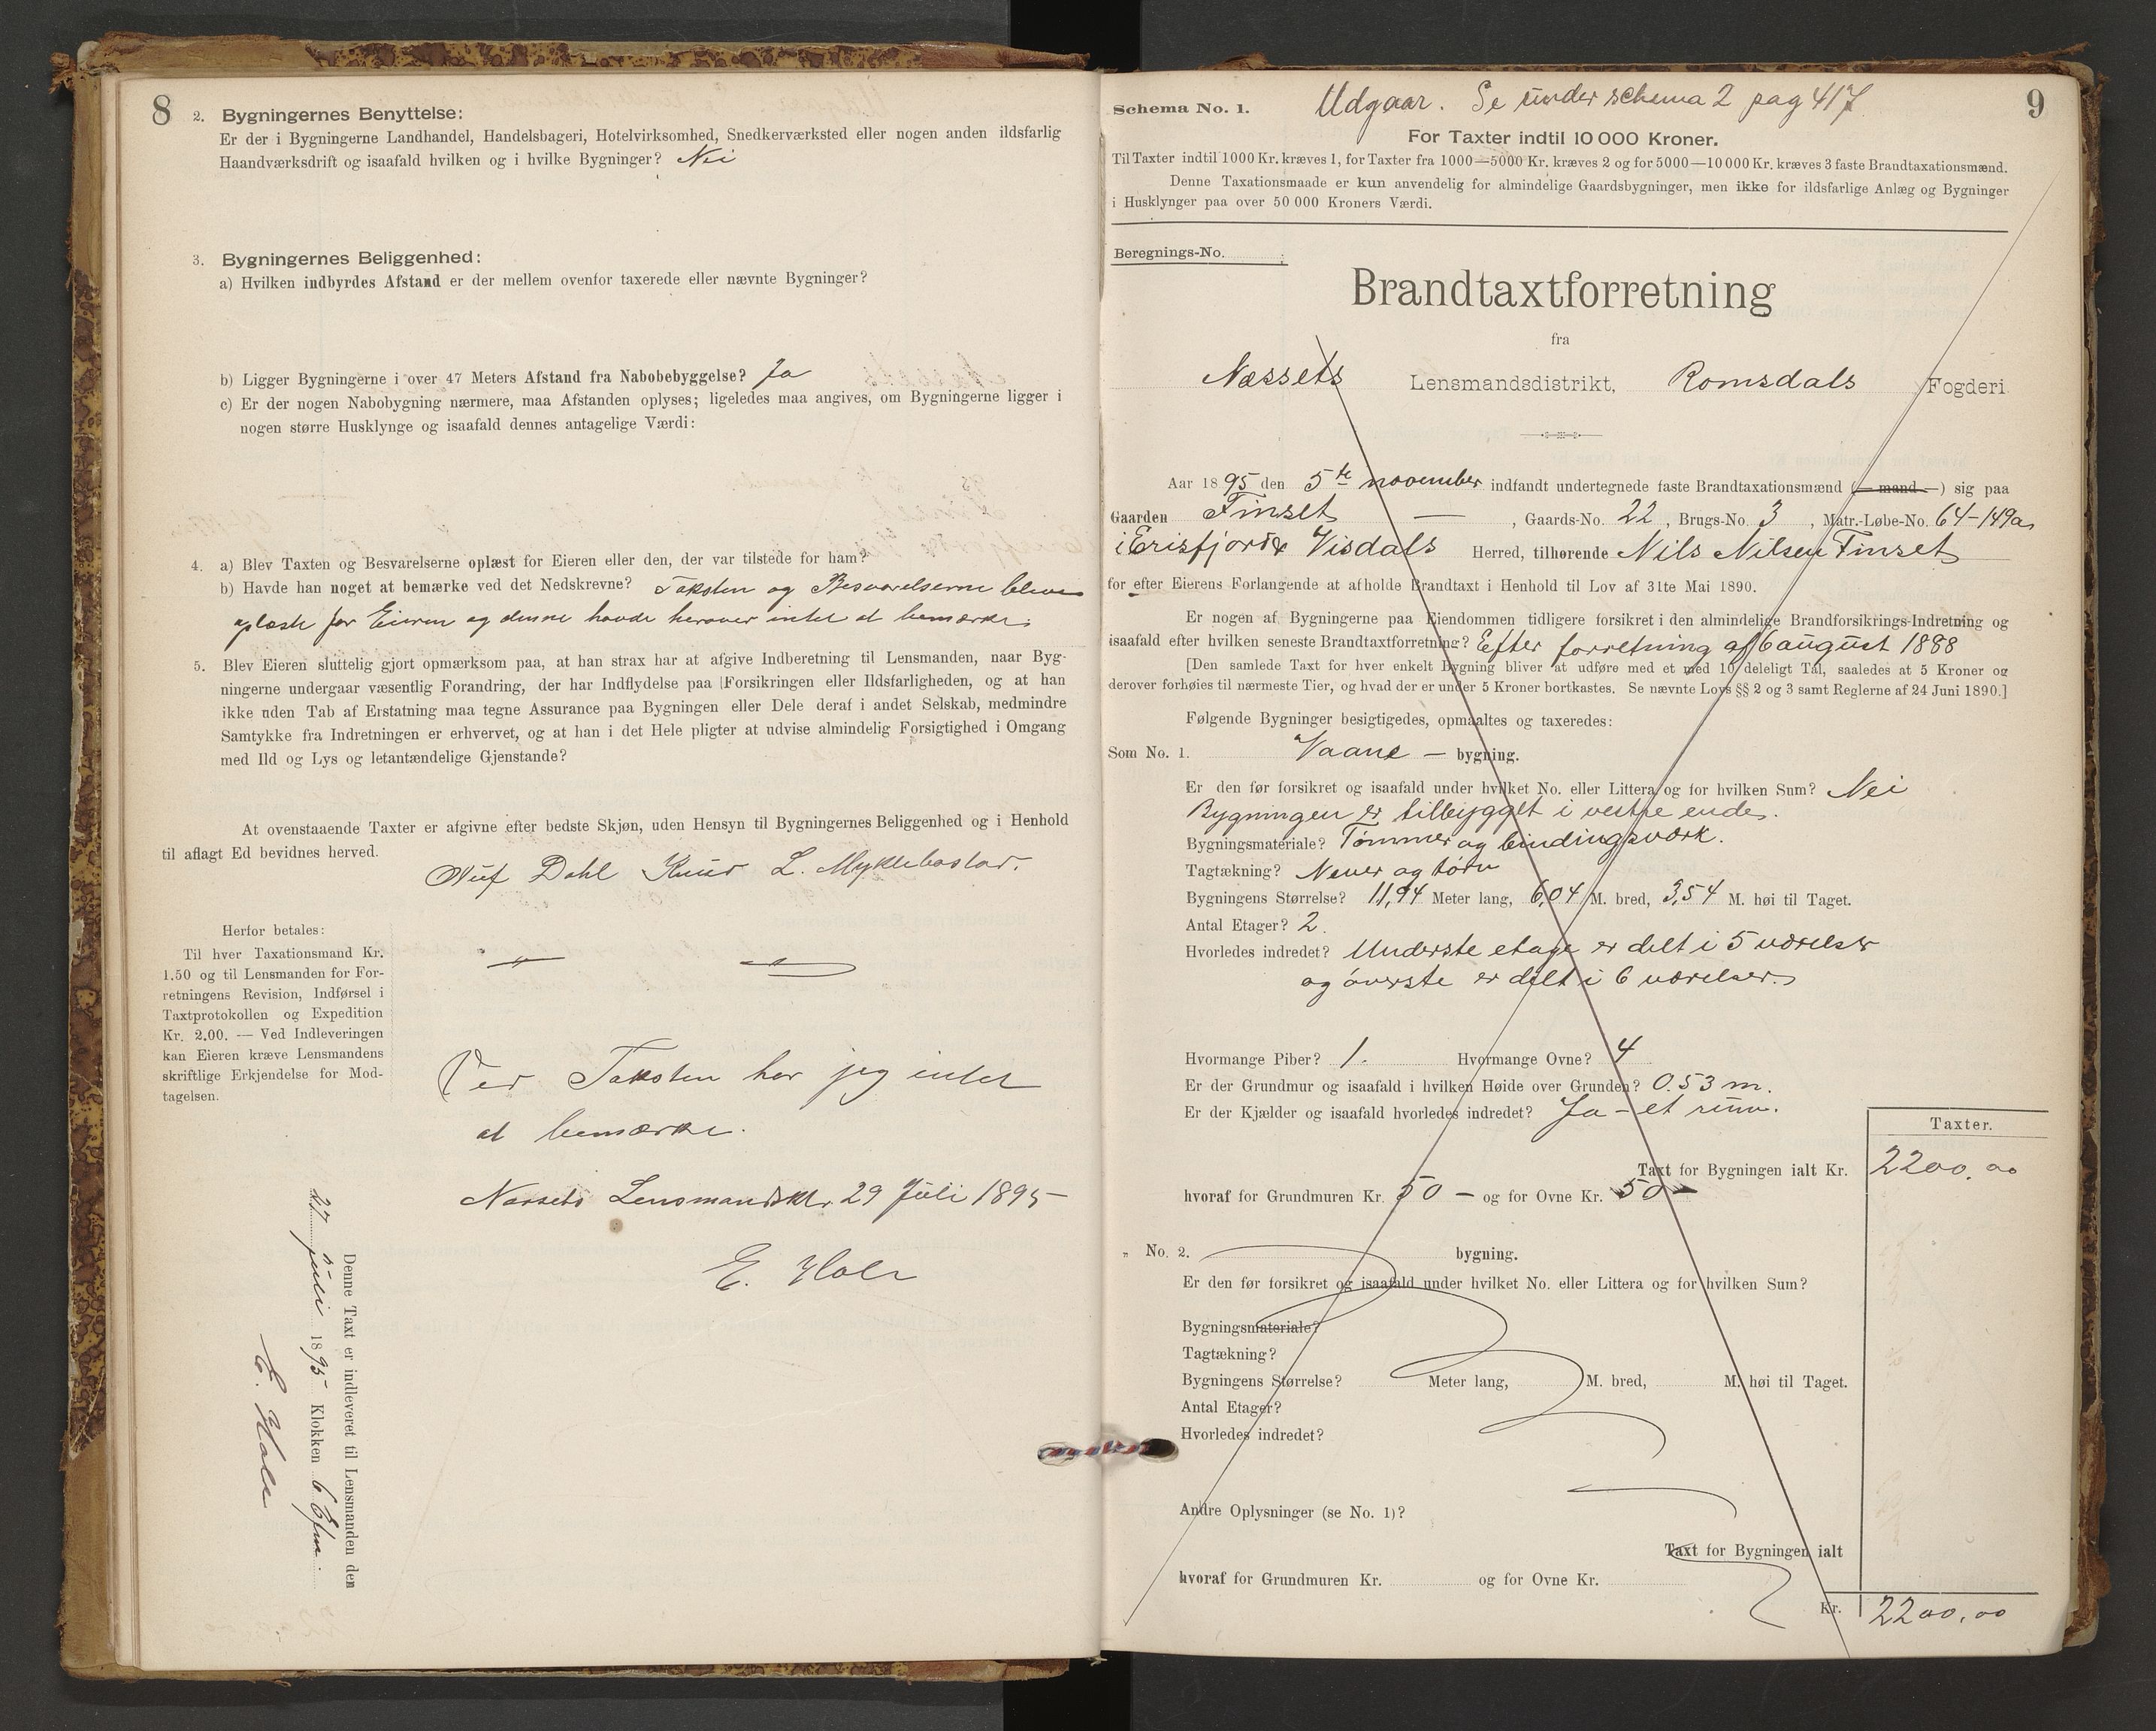 8
2. Bygningernes Benyttelse:
Er der i Bygningerne Landhandel, Handelsbageri, Hotelvirksomhed, Snedkerværksted eller nogen anden ildsfarlig
Haandværksdrift og isaafald hvilken og i hvilke Bygninger? Nei
3. Bygningernes Beliggenhed:
a) Hvilken indbyrdes Afstand er der mellem ovenfor taxerede eller nævnte Bygninger?
b) Ligger Bygningerne i over 47 Meters Afstand fra Nabobebyggelse? Ja
c) Er der nogen Nabobygning nærmere, maa Afstanden oplyses; ligeledes maa angives, om Bygningerne ligger i
nogen større Husklynge og isaafald dennes antagelige Værdi:
4. a) Blev Taxten og Besvarelserne oplæst for Eieren eller den, der var tilstede for ham?
b) Havde han noget at bemærke ved det Nedskrevne? Taksten og Besvarelserne bleve
oplæste for Eieren og denne havde herover intet at bemærke.
5. Blev Eieren sluttelig gjort opmærksom paa, at han strax har at afgive Indberetning til Lensmanden, naar Byg-
ningerne undergaar væsentlig Forandring, der har Indflydelse paa Forsikringen eller Ildsfarligheden, og at han
ikke uden Tab af Erstatning maa tegne Assurance paa Bygningen eller Dele deraf i andet Selskab, medmindre
Samtykke fra Indretningen er erhvervet, og at han i det Hele pligter at udvise almindelig Forsigtighed i Omgang
med Ild og Lys og letantændelige Gjenstande?
At ovenstaaende Taxter er afgivne efter bedste Skjøn, uden Hensyn til Bygningernes Beliggenhed og i Henhold
til aflagt Ed bevidnes herved.
Oluf Dahl Knud L. Myklebostad.
Herfor betales:
Til hver Taxationsmand Kr.
1.50 og til Lensmanden for For-
retningens Revision, Indførsel i
Taxtprotokollen og Expedition
Kr. 2.00. — Ved Indleveringen
kan Eieren kræve Lensmandens
skriftlige Erkjendelse for Mod-
tagelsen.
Ved Taksten har jeg intet
at bemærke.
Næssets Lensmandsktr 29 Juli 1895
E. Hole
Denne Taxt er indleveret til Lensmanden den
27 juli 1895 Klokken 6 Efm.
E. Hole
9
Schema No. 1. Udgaar. Se under schema 2 pag 417
For Taxter indtil 10 000 Kroner.
Til Taxter indtil 1000 Kr. kræves 1, for Taxter fra 1000—5000 Kr. kræves 2 og for 5000—10 000 Kr. kræves 3 faste Brandtaxationsmænd.
Denne Taxationsmaade er kun anvendelig for almindelige Gaardsbygninger, men ikke for ildsfarlige Anlæg og Bygninger
i Husklynger paa over 50 000 Kroners Værdi.
Beregnings-No. ;
Brandtaxtforretning
fra
Næssets Lensmandsdistrikt, Romsdals Fogderi
Aar 1895 den 5te november indfandt undertegnede faste Brandtaxationsmænd (— mand —) sig paa
Gaarden Finset — , Gaards-No. 22, Brugs-No. 3, Matr.-Løbe-No. 64-149a,
i Erisfjord & Visdals Herred, tilhørende Nils Nilsen Finset
for efter Eierens Forlangende at afholde Brandtaxt i Henhold til Lov af 31te Mai 1890.
Er nogen af Bygningerne paa Eiendommen tidligere forsikret i den almindelige Brandforsikrings-Indretning og
isaafald efter hvilken seneste Brandtaxtforretning? Efter forretning af 6 august 1888
[Den samlede Taxt for hver enkelt Bygning bliver at udføre med et med 10 deleligt Tal, saaledes at 5 Kroner og
derover forhøies til nærmeste Tier, og hvad der er under 5 Kroner bortkastes. Se nævnte Lovs §§ 2 og 3 samt Reglerne af 24 Juni 1890.]
Følgende Bygninger besigtigedes, opmaaltes og taxeredes:
Som No. 1. Vaane — bygning.
Er den før forsikret og isaafald under hvilket No. eller Littera og for hvilken Sum? Nei
Bygningen er tilbygget i vestre ende.
Bygningsmateriale? Tømmer og bindingsværk.
Tagtækning? Never og tórv
Bygningens Størrelse? 11,94 Meter lang, 6,04 M. bred, 3,54 M. høi til Taget.
Antal Etager? 2.
Hvorledes indredet? Underste etage er delt i 5 værelser
og óverste er delt i 6 værelser.
Hvormange Piber? 1. Hvormange Ovne? 4
Er der Grundmur og isaafald i hvilken Høide over Grunden? 0.53 m.
Er der Kjælder og isaafald hvorledes indredet? Ja - et rum.
Taxter.
Taxt for Bygningen ialt Kr. 2200,00
hvoraf for Grundmuren Kr. 50 — og for Ovne Kr. 50 —
„ No. 2. bygning.
Er den før forsikret og isaafald under hvilket No. eller Littera og for hvilken Sum?
Bygningsmateriale?
Tagtækning?
Bygningens Størrelse? Meter lang, M. bred, M. høi til Taget.
Antal Etager?
Hvorledes indredet?
Andre Oplysninger (se No. 1)?
Taxt for Bygningen ialt
hvoraf for Grundmuren Kr. og for Ovne Kr.
Kr. 2200,00